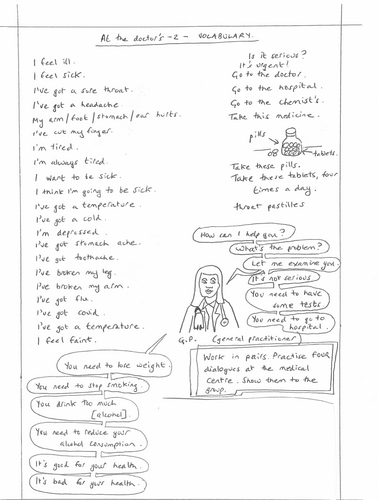 At the doctor's -2 - VOCABULARY.
I feel ill.
I feel sick.
I've got a sore throat.
I've got a headache.
My arm/foot/stomach/ear hurts.
I've cut my finger.
I'm tired.
I'm always tired.
I want to be sick.
I think I'm going to be sick.
I've got a temperature.
I've got a cold.
I'm depressed.
I've got stomach ache.
I've got toothache.
I've broken my leg.
I've broken my arm.
I've got flu.
I've got covid.
I've got a temperature.
I feel faint.
Is it serious?
It's urgent!
Go to the doctor.
Go to the hospital.
Go to the chemist's.
Take this medicine.
pills
tablets.
Take these pills.
Take these tablets, four
times a day.
throat pastilles
How can I help you?
What's the problem?
Let me examine you
It's not serious
You need to have
some tests
You need to go to
hospital.
G.P. (general practitioner)
You need to lose weight.
You need to stop smoking.
You drink too much
[alcohol].
You need to reduce your
alcohol consumption.
It's good for your health.
It's bad for your health.
Work in pairs. Practise FOUR
dialogues at the medical
centre. Show them to the
group.